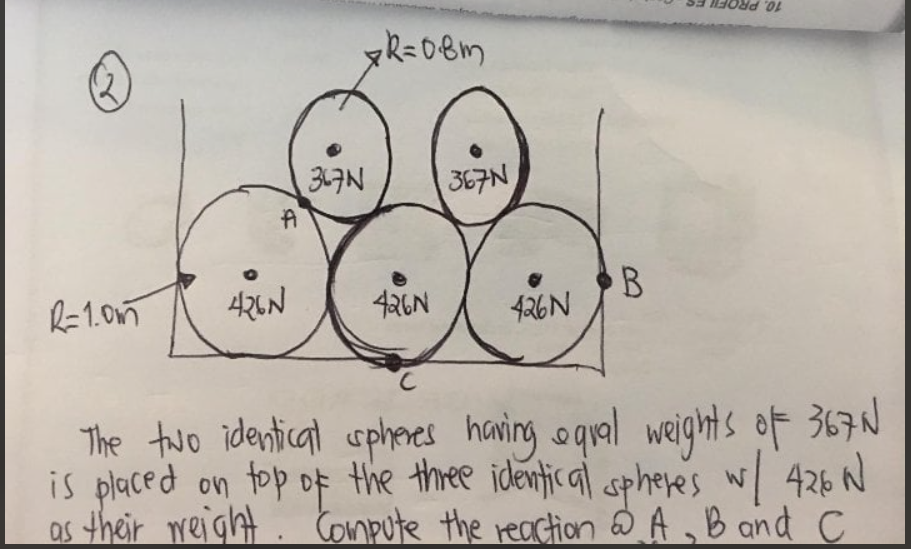 10. PROFILES
2
R=0.8m
367N
367N
A
B
426N
426N
426N
R=1.0m
C
The two identical spheres having equal weights of 367N
is placed on top of the three identical spheres w/ 426 N
as their weight. Compute the reaction @ A, B and C